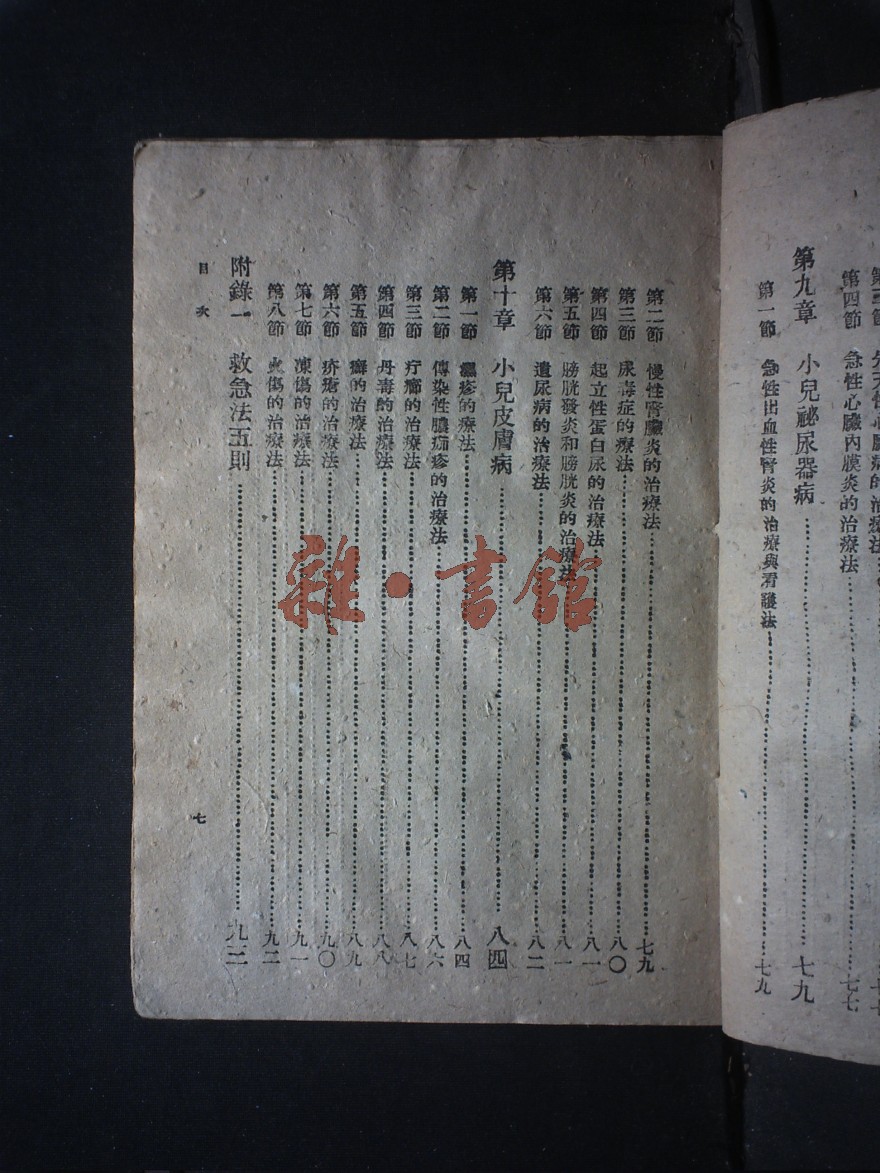 第四節　急性心臟內膜炎的治療法……七七
第九章　小兒祕尿器病……七九
第一節　急性出血性腎炎的治療與看護法……七九
第二節　慢性腎臟炎的治療法……七九
第三節　尿毒症的療法……八〇
第四節　起立性蛋白尿的治療法……八一
第五節　膀胱發炎和膀胱炎的治療法……八一
第六節　遺尿病的治療法……八二
第十章　小兒皮膚病……八四
第一節　濕疹的療法……八四
第二節　傳染性膿痂疹的治療法……八六
第三節　疔癤的治療法……八七
第四節　丹毒的治療法……八八
第五節　癬的治療法……八九
第六節　疥瘡的治療法……九〇
第七節　凍傷的治療法……九一
第八節　火傷的治療法……九二
附錄一　救急法五則……九三
目次
七
雜·書館